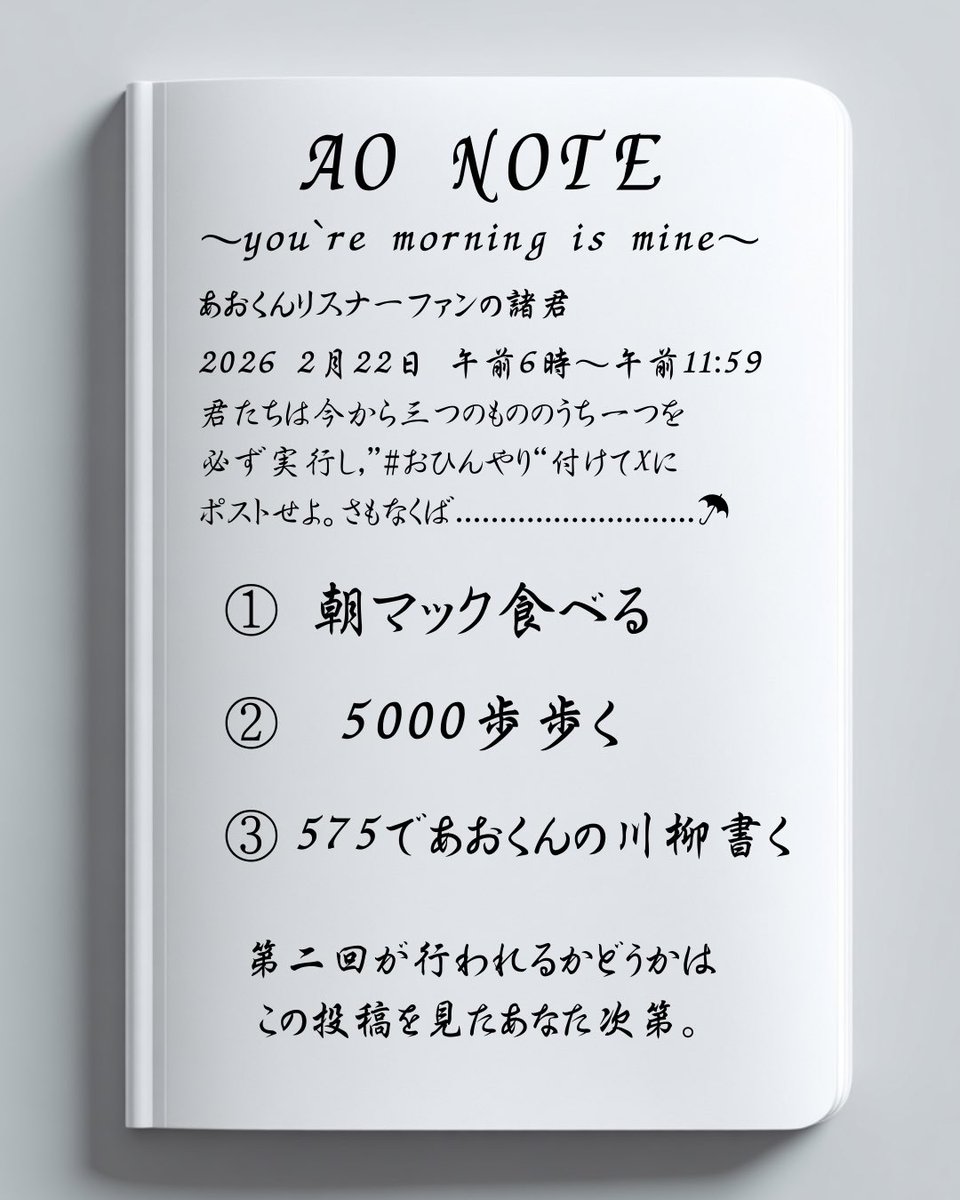 AO NOTE
～you`re morning is mine～
あおくんリスナーファンの諸君
2026 2月22日 午前6時～午前11:59
君たちは今から三つのもののうち一つを
必ず実行し,”#おひんやり“付けてXに
ポストせよ。さもなくば...........................☂
① 朝マック食べる
② 5000歩 歩く
③ 575であおくんの川柳書く
第二回が行われるかどうかは
この投稿を見たあなた次第。